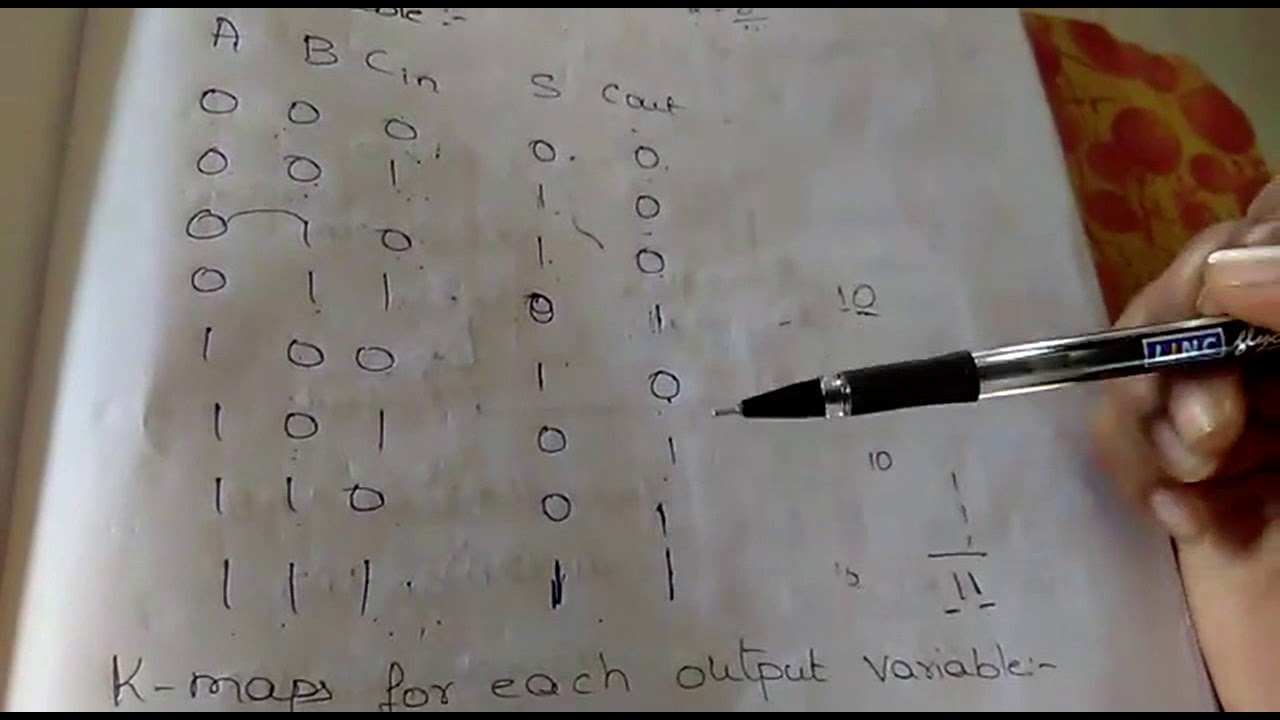 A B Cin S Cout
0 0 0 0 0
0 0 1 1 0
0 1 0 1 0
0 1 1 0 1
1 0 0 1 0
1 0 1 0 1
1 1 0 0 1
1 1 1 1 1
10
10
1
1
1
11
LINC
K-maps for each output variable:-